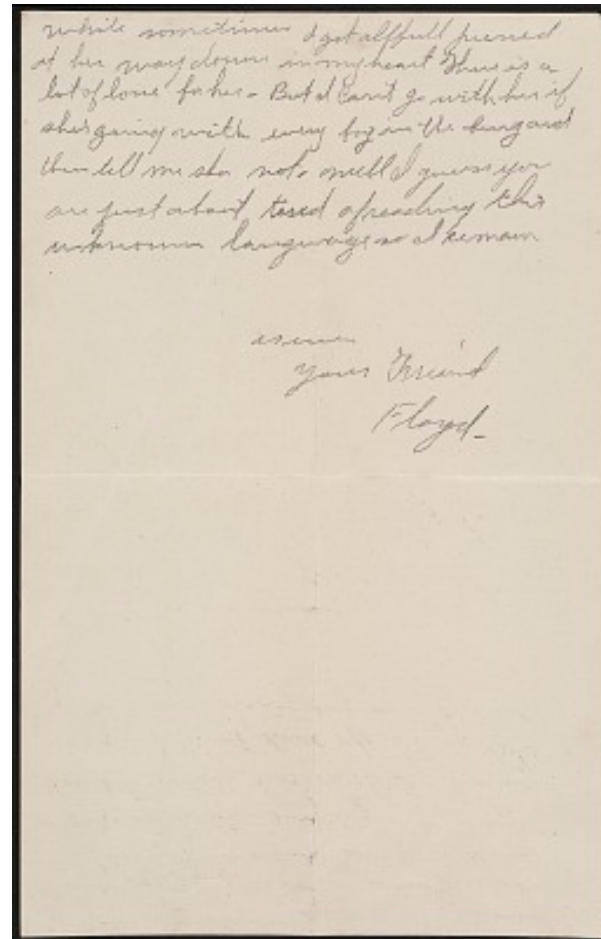 while sometimes I get allfull peeved
at her way down in my heart There is a
lot of love for her. But I can't go with her if
she's going with every boy in the and
then tell me she not. well I guess you
are just about tired of reading this
unknown language so I remain
as ever
your Friend
Floyd-